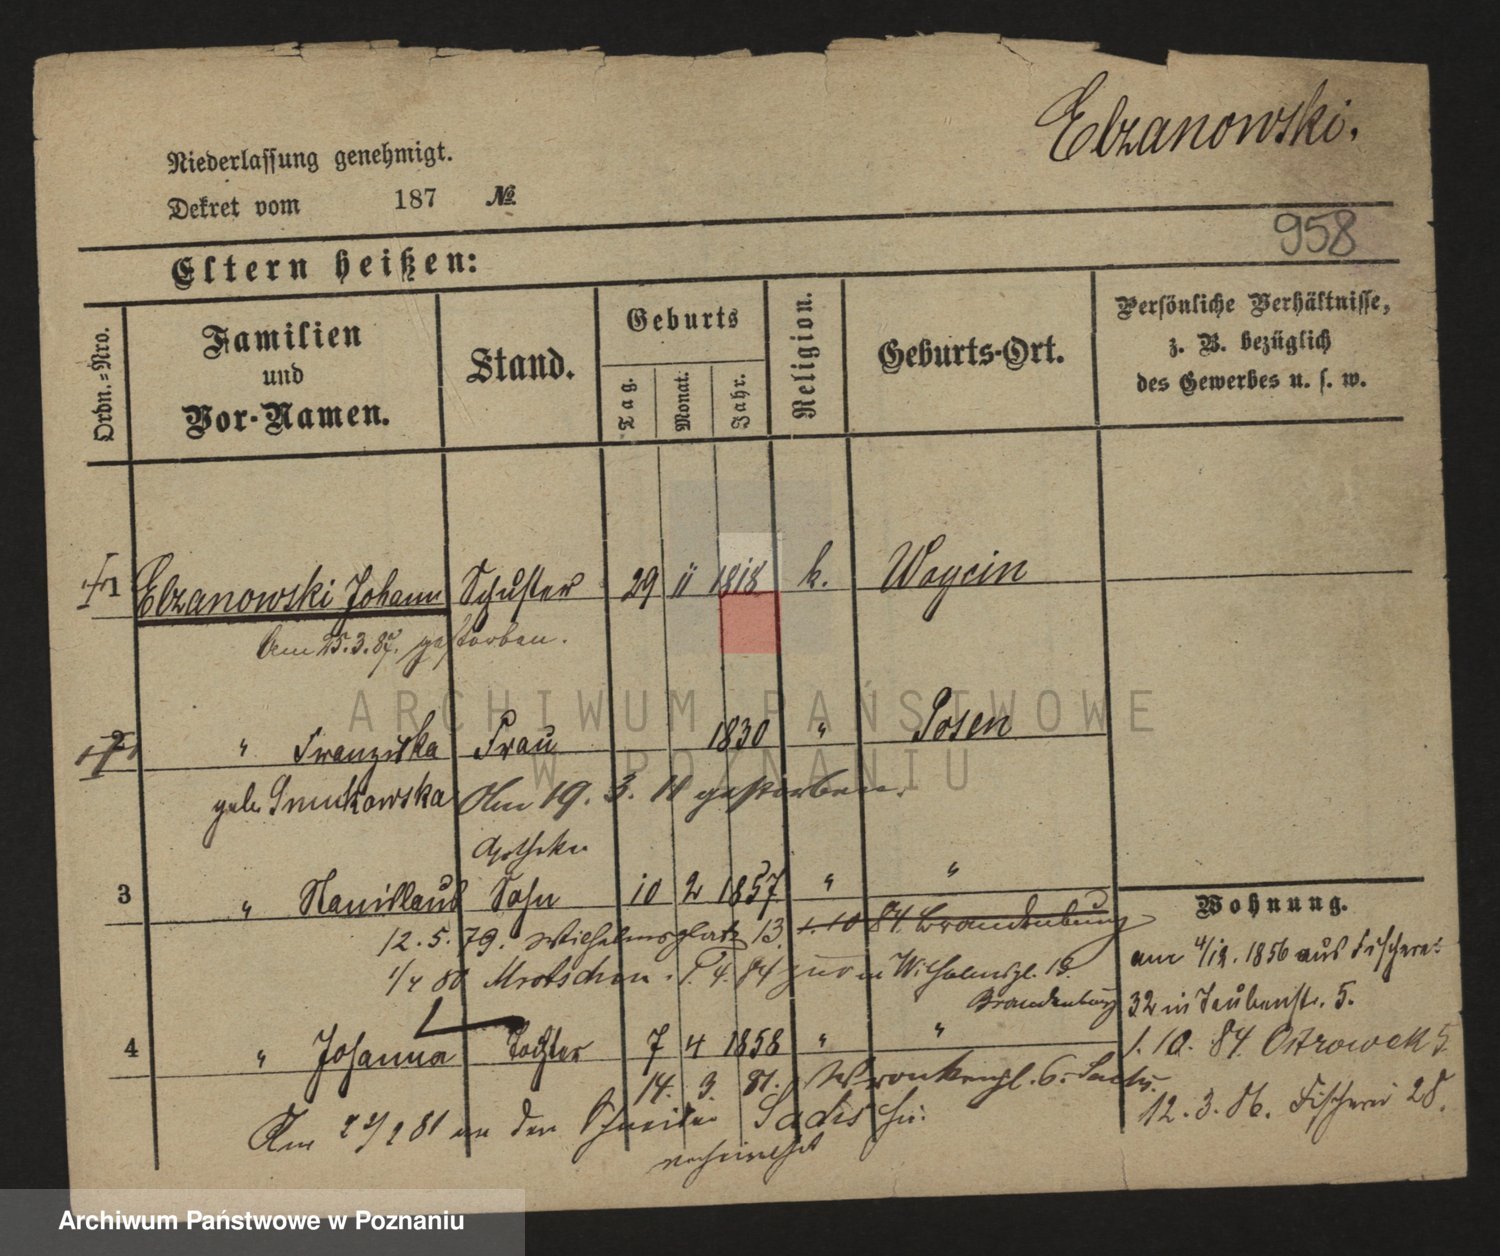 Elzanowski.
Niederlassung genehmigt.
Dekret vom 187 №
958
Eltern heißen:
Ordn.-Nro.
Familien
und
Vor-Namen.
Stand.
Geburts
Tag.
Monat.
Jahr.
Religion.
Geburts-Ort.
Persönliche Verhältnisse,
z. B. bezüglich
des Gewerbes u. s. w.
1 Elzanowski Johann Schuster 29 11 1818 k. Woycin
Am 25.3.87. gestorben.
ARCHIWUM PAŃSTWOWE
W POZNANIU
2 " Franziska Frau 1830 " Posen
geb. Am 19. 3. 11 gestorben.
Apotheker
3 " Stanislaus Sohn 10 2 1857 " "
12. 5. 79. Wilhelmsplatz 13. 1. 10 84. Brandenburg
1/4 80 Mrotschen. 84 Wilhelmspl. 13.
Brandenburg
4 " Johanna Tochter 7 4 1858 " "
14. 9. 81. Wronkerpl. 6.
Am 81 an den Schneider
Wohnung.
am 4/12. 1856 aus Fischerei
32 in Taubenstr. 5.
1. 10. 84. Ostrowek 5
12. 3. 86. Fischerei 28.
Archiwum Państwowe w Poznaniu